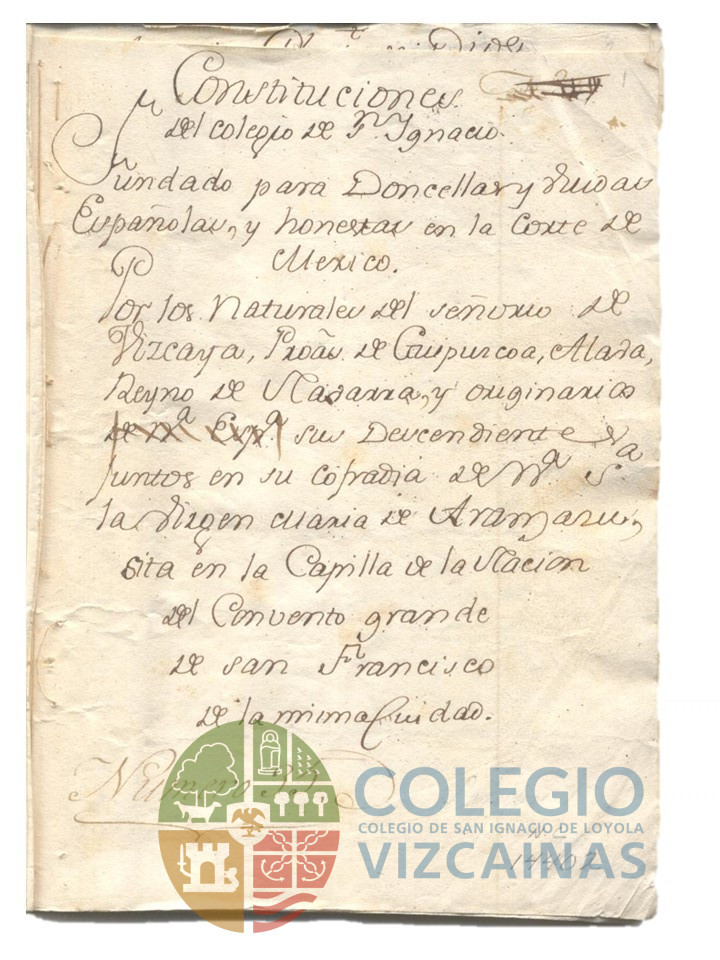 Constituciones
del colegio de Sn Ygnacio.
Fundado para Doncellas y viudas
Españolas, y honestas en la Corte de
Mexico.
Por los Naturales del señorio de
Vizcaya, Proãs. de Guipuscoa, Alava,
Reyno de Navarra, y originarios
de nra. Espa. sus Descendientes
Juntos en su cofradia de Nra. Sa.
la Virgen Maria de Aranzazu,
sita en la Capilla de la Nacion
del Convento grande
de san Francisco
de la mima Ciudad.
Numero
COLEGIO
COLEGIO DE SAN IGNACIO DE LOYOLA
VIZCAINAS